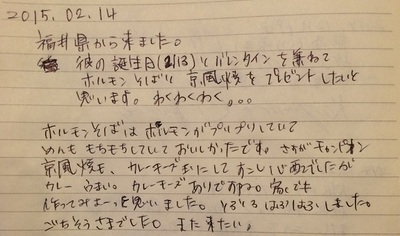 2015.02.14
福井県から来ました。
彼の誕生日(2/13)とバレンタインを兼ねて
ホルモンそばと京風焼をプレゼントしたいと
思います。わくわくわく。。。
ホルモンそばはホルモンがプリプリしていて
めんももちもちしていておいしかったです。さすがチャンピオン
京風焼も、カレーチーズにしてすこし心配でしたが
カレーうまい。カレーチーズありですね。家でも
作ってみよーっと思いました。とろとろはふはふしました。
ごちそうさまでした。また来たい。